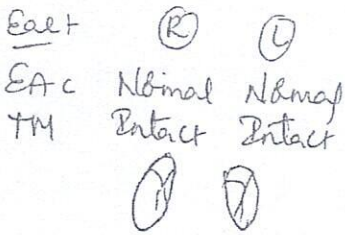 Ear Ⓡ Ⓛ
EAC Normal Normal
TM Intact Intact